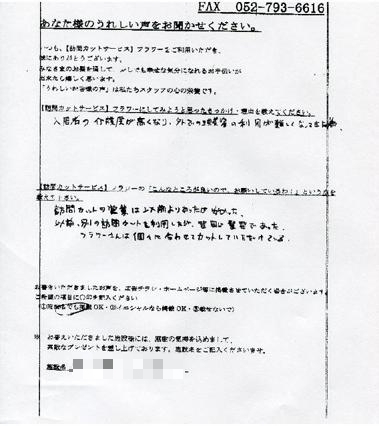 FAX 052-793-6616
あなた様のうれしい声をお聞かせください。
いつも、【訪問カットサービス】フラワーをご利用いただき、
誠にありがとうございます。
みなさまのお髪を通して、少しでも幸せな気分になれるお手伝いが
出来たら嬉しく思います。
「うれしいお客様の声」は私たちスタッフの心の栄養です。
【訪問カットサービス】フラワーにしてみようと思ったきっかけ・理由を教えてください。
入居者の介護度が高くなり、外での理美容の利用が難しくなってきた為
【訪問カットサービス】フラワーの「こんなところが良いので、お願いしているわ!」という点を
教えて下さい。
訪問カットの営業は以前よりあったが
以前、別の訪問カットを利用したが、皆同じ髪型であった。
フラワーさんは個々に合わせてカットしていただけている
お書きいただきましたお声を、広告チラシ・ホームページ等に掲載させていただく場合がございます。
ご希望の項目に○印を記入ください
②イニシャルなら掲載OK・③載せないで)
※ お答えいただきました施設様には、感謝の気持を込めまして、
素敵なプレゼントを差し上げております。施設名をご記入くださいませ。
施設名